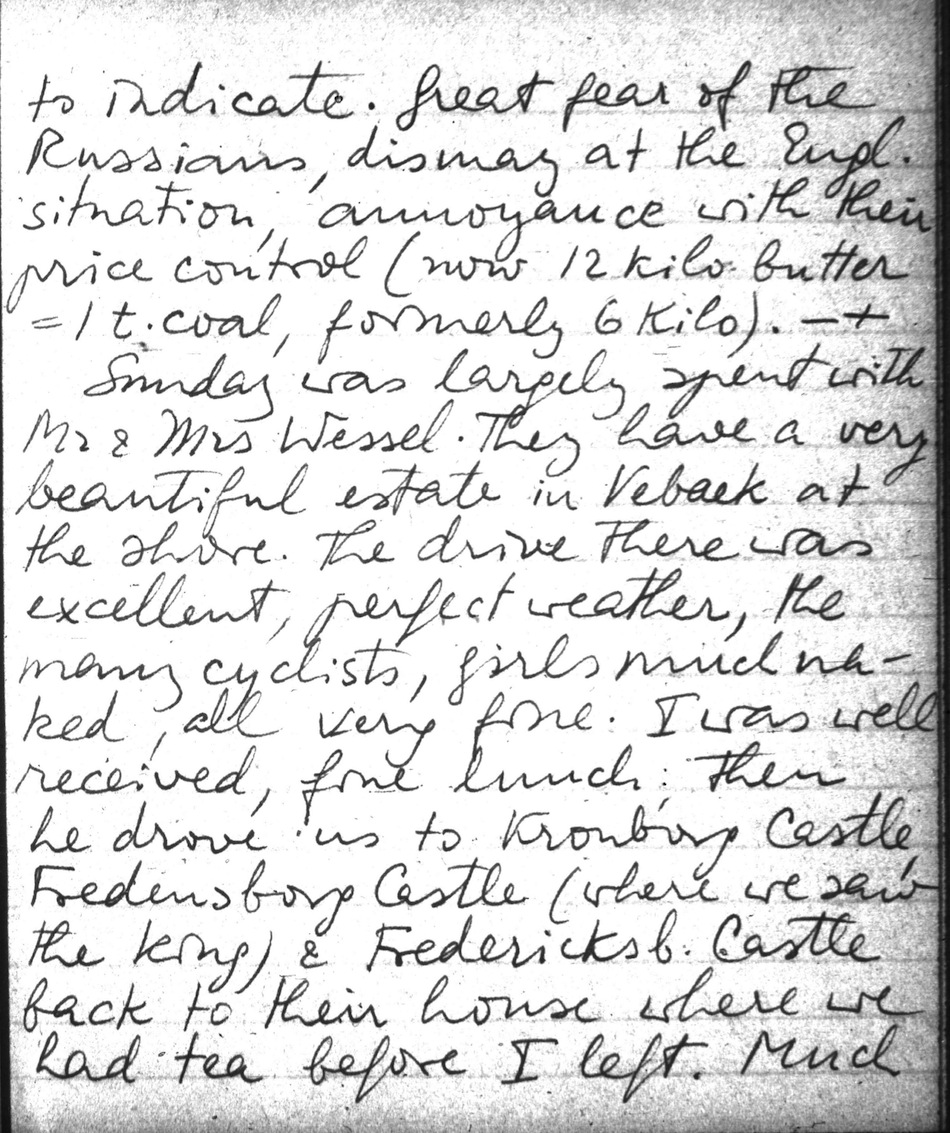 to indicate. Great fear of the
Russians, dismay at the Engl.
situation, annoyance with their
price control (now 12 kilo butter
= 1 t. coal, formerly 6 Kilo). —+
Sunday was largely spent with
Mr & Mrs Wessel. They have a very
beautiful estate in Vebaek at
the shore. The drive there was
excellent, perfect weather, the
many cyclists, girls much na-
ked, all very fine. I was well
received, fine lunch. Then
he drove us to Kronborg Castle,
Fredensborg Castle (where we saw
the king) & Fredericksb. Castle
back to their house where we
had tea before I left. Much